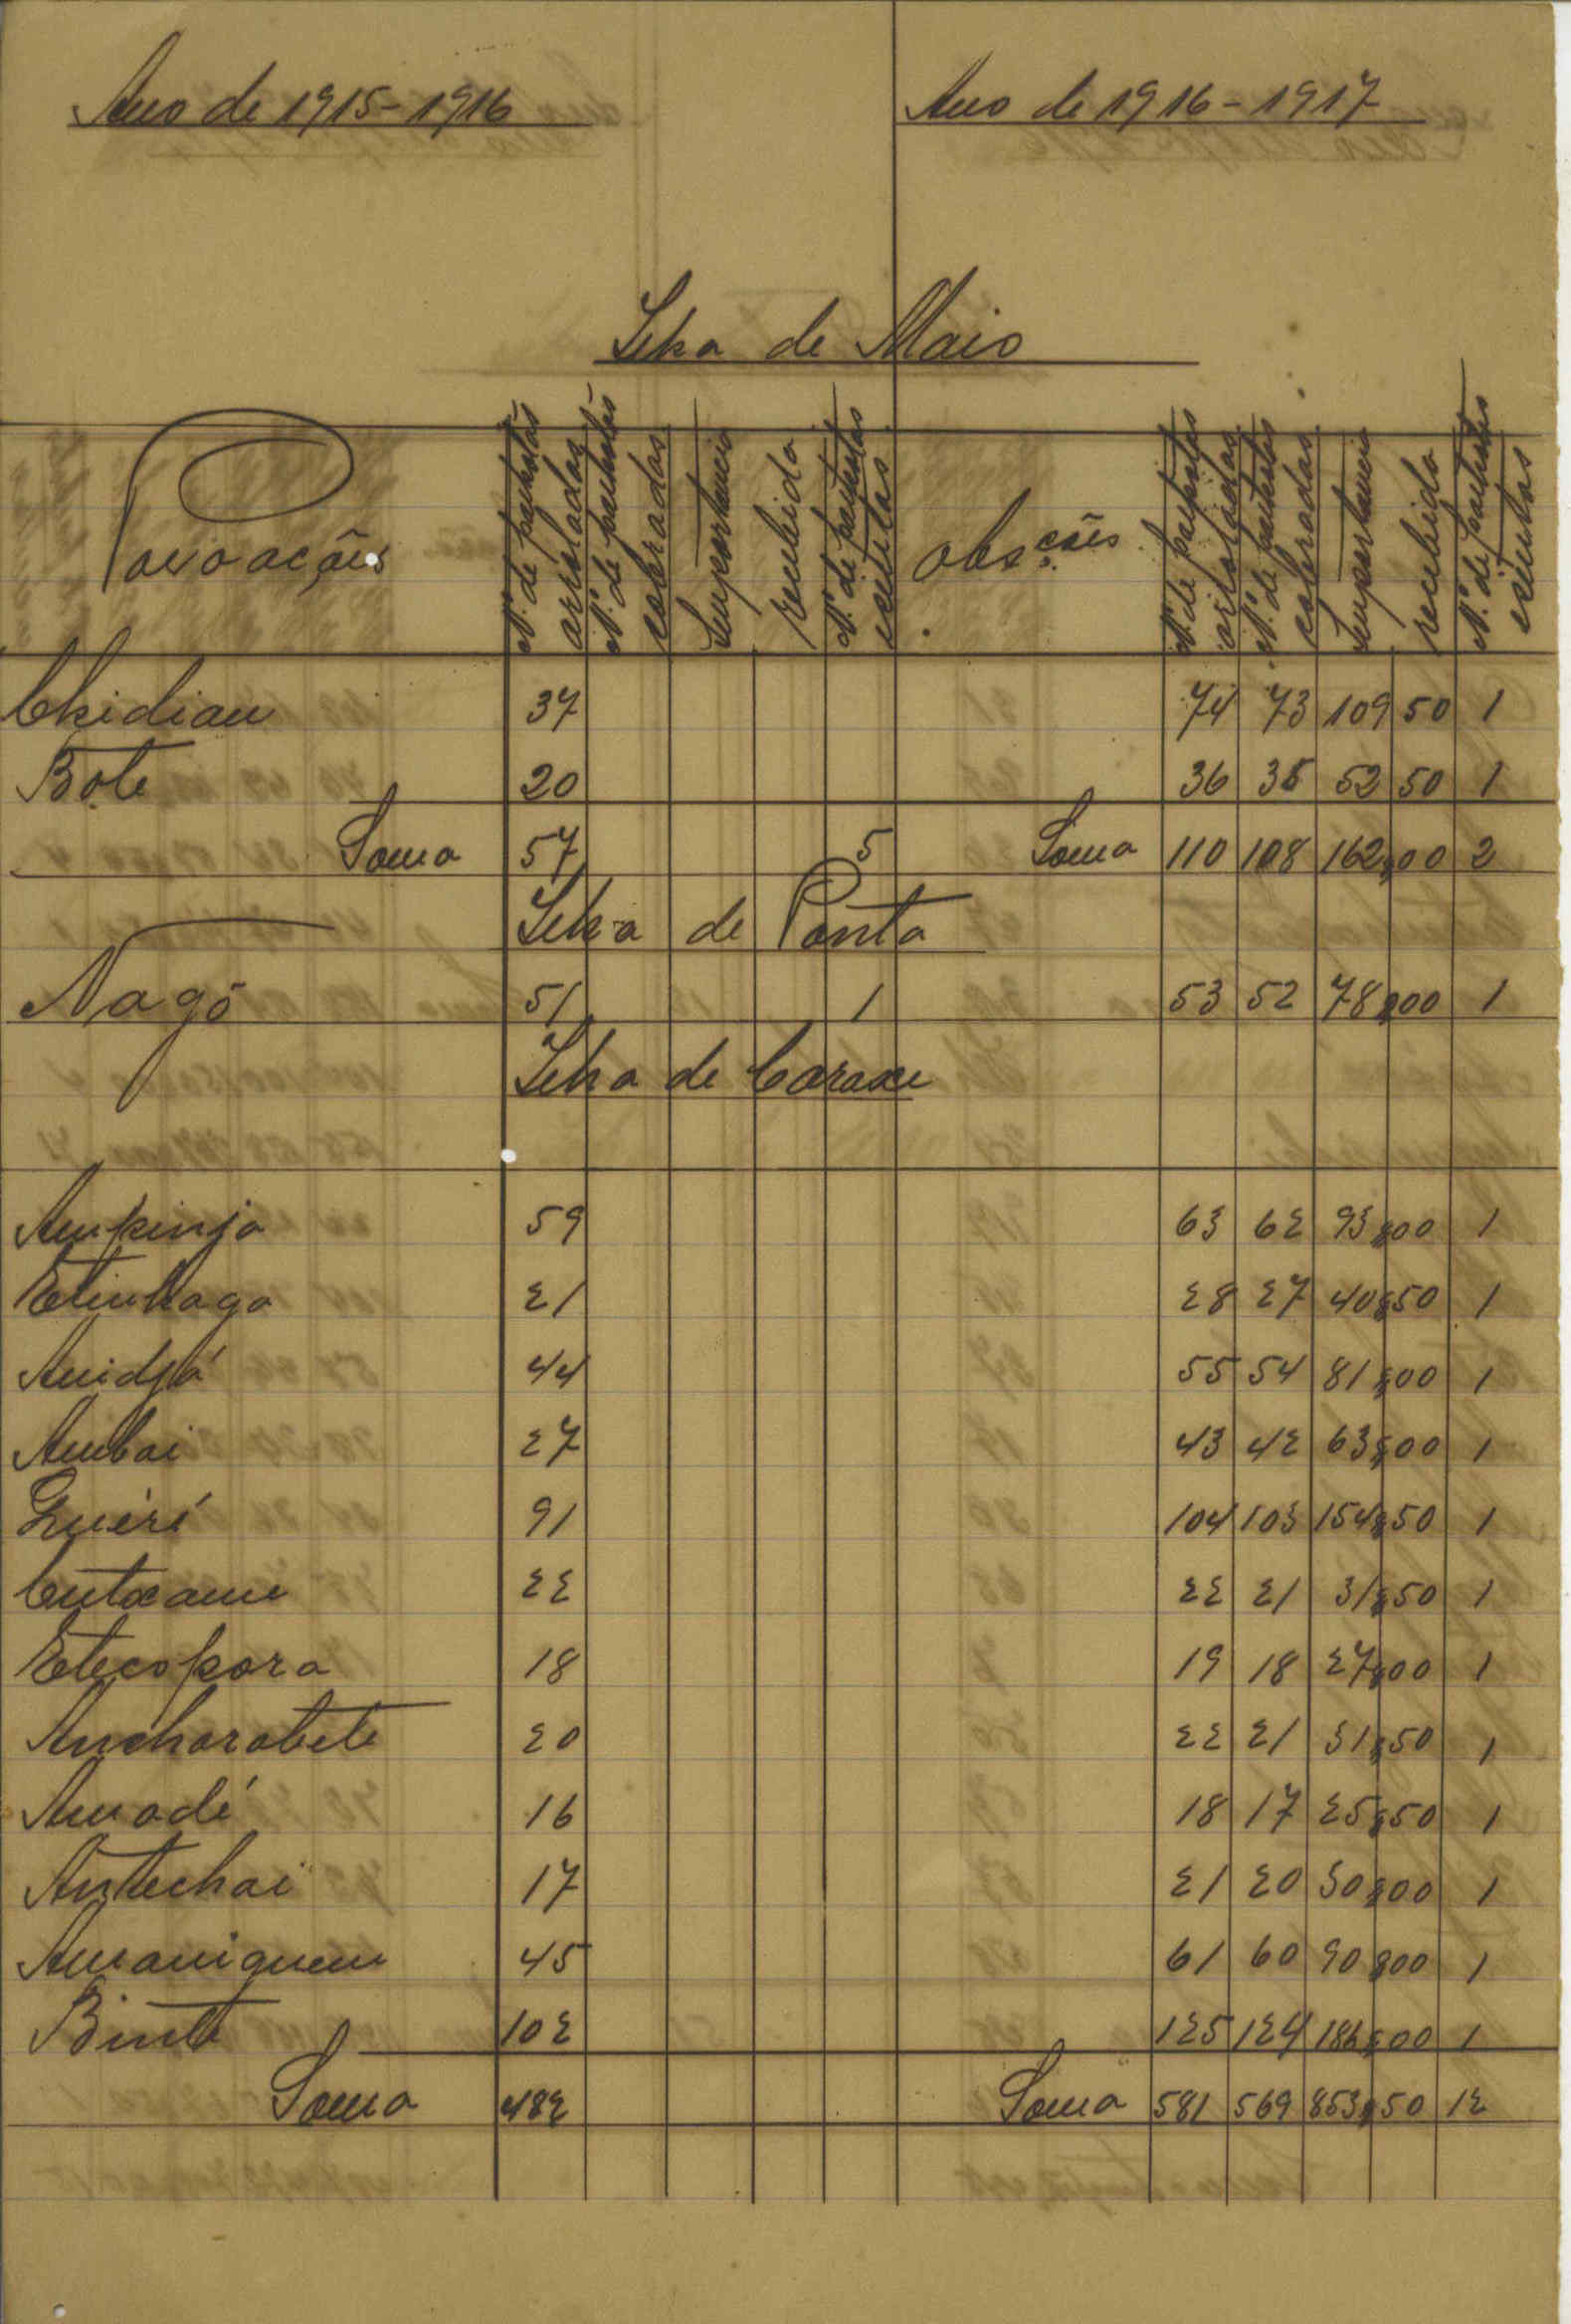 Ano de 1915-1916
Ano de 1916-1917
Ilha de Maio
Povoações
Nº. de palhotas arroladas
Nº. de palhotas cobradas
Importancia recebida
Nº. de palhotas isentas
Obs.ções
Nº. de palhotas arroladas
Nº. de palhotas cobradas
Importancia recebida
Nº. de palhotas isentas
Chidian 37 74 73 109 50 1
Bote 20 36 35 52 50 1
Soma 57 5 Soma 110 108 162$00 2
Ilha de Ponta
Nagô 51 1 53 52 78$00 1
Ilha de Caraxe
Ampinja 59 63 62 93$00 1
21 28 27 40$50 1
44 55 54 81$00 1
Ambai 27 43 42 63$00 1
91 104 103 154$50 1
22 22 21 31$50 1
Etecopora 18 19 18 27$00 1
Ancharabete 20 22 21 31$50 1
16 18 17 25$50 1
Antechai 17 21 20 30$00 1
45 61 60 90$00 1
Binte 102 125 124 186$00 1
Soma 482 Soma 581 569 853$50 12